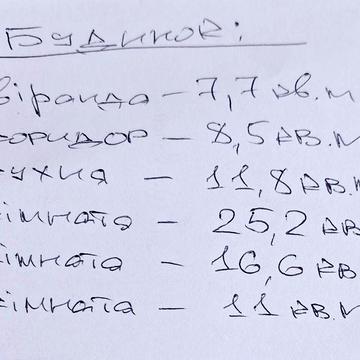 Будинок:
віранда - 7,7 кв.м
коридор - 8,5 кв.м
кухня - 11,8 кв.м
кімната - 25,2 кв.
кімната - 16,6 кв
кімната - 11 кв.м